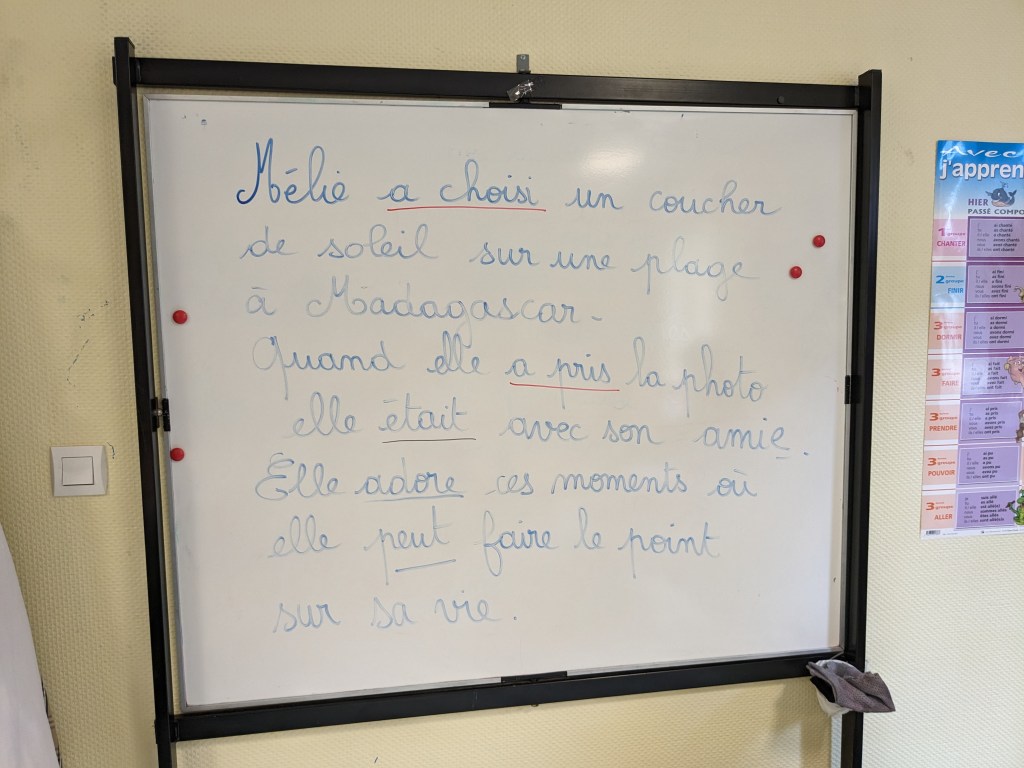 Mélie a choisi un coucher
de soleil sur une plage
à Madagascar.
Quand elle a pris la photo
elle était avec son amie.
Elle adore ces moments où
elle peut faire le point
sur sa vie.
Avec
j'appren
HIER
PASSÉ COMPO
1er groupe
CHANTER
2e groupe
FINIR
3e groupe
DORMIR
3e groupe
FAIRE
3e groupe
PRENDRE
3e groupe
POUVOIR
3e groupe
ALLER